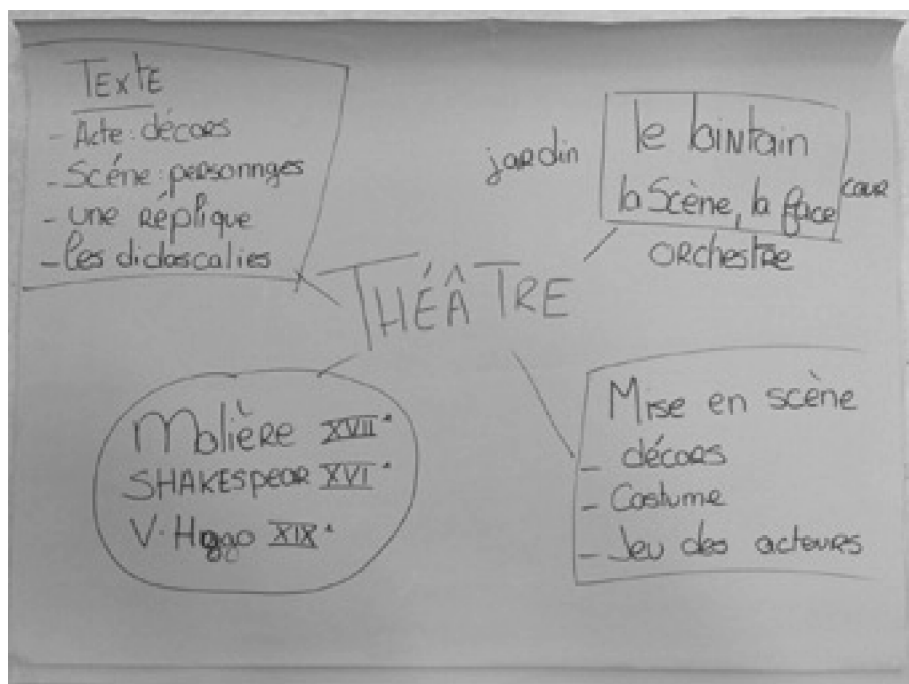 TExTE
- Acte: décors
- Scéne: personnges
- une Réplique
- les didascalies
le lointain
jardin
la Scène, la face
cour
ORchestRe
THÉÂTRE
Molière XVII°
SHAKEspear XVI°
V. Hugo XIX°
Mise en scène
- décors
- Costume
- Jeu des acteurs